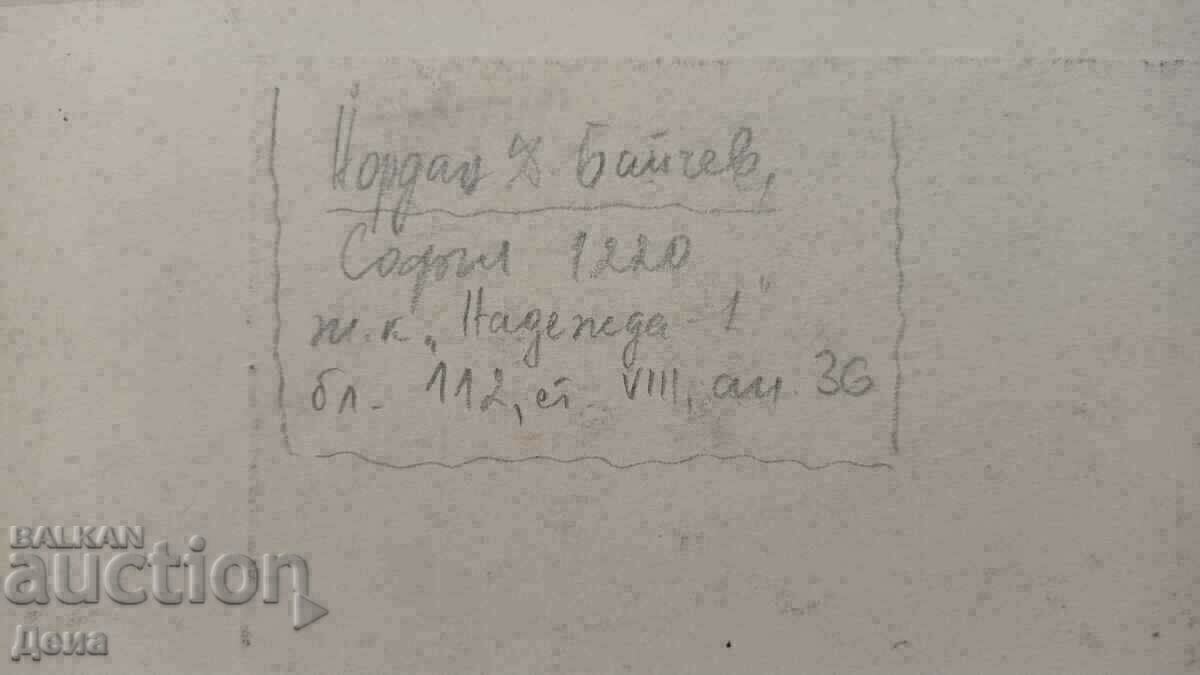 Йордан Байчев,
София 1220
ж.к. „Надежда - 1"
бл. 112, ет. VIII, ап. 36
BALKAN
auction
Деиа